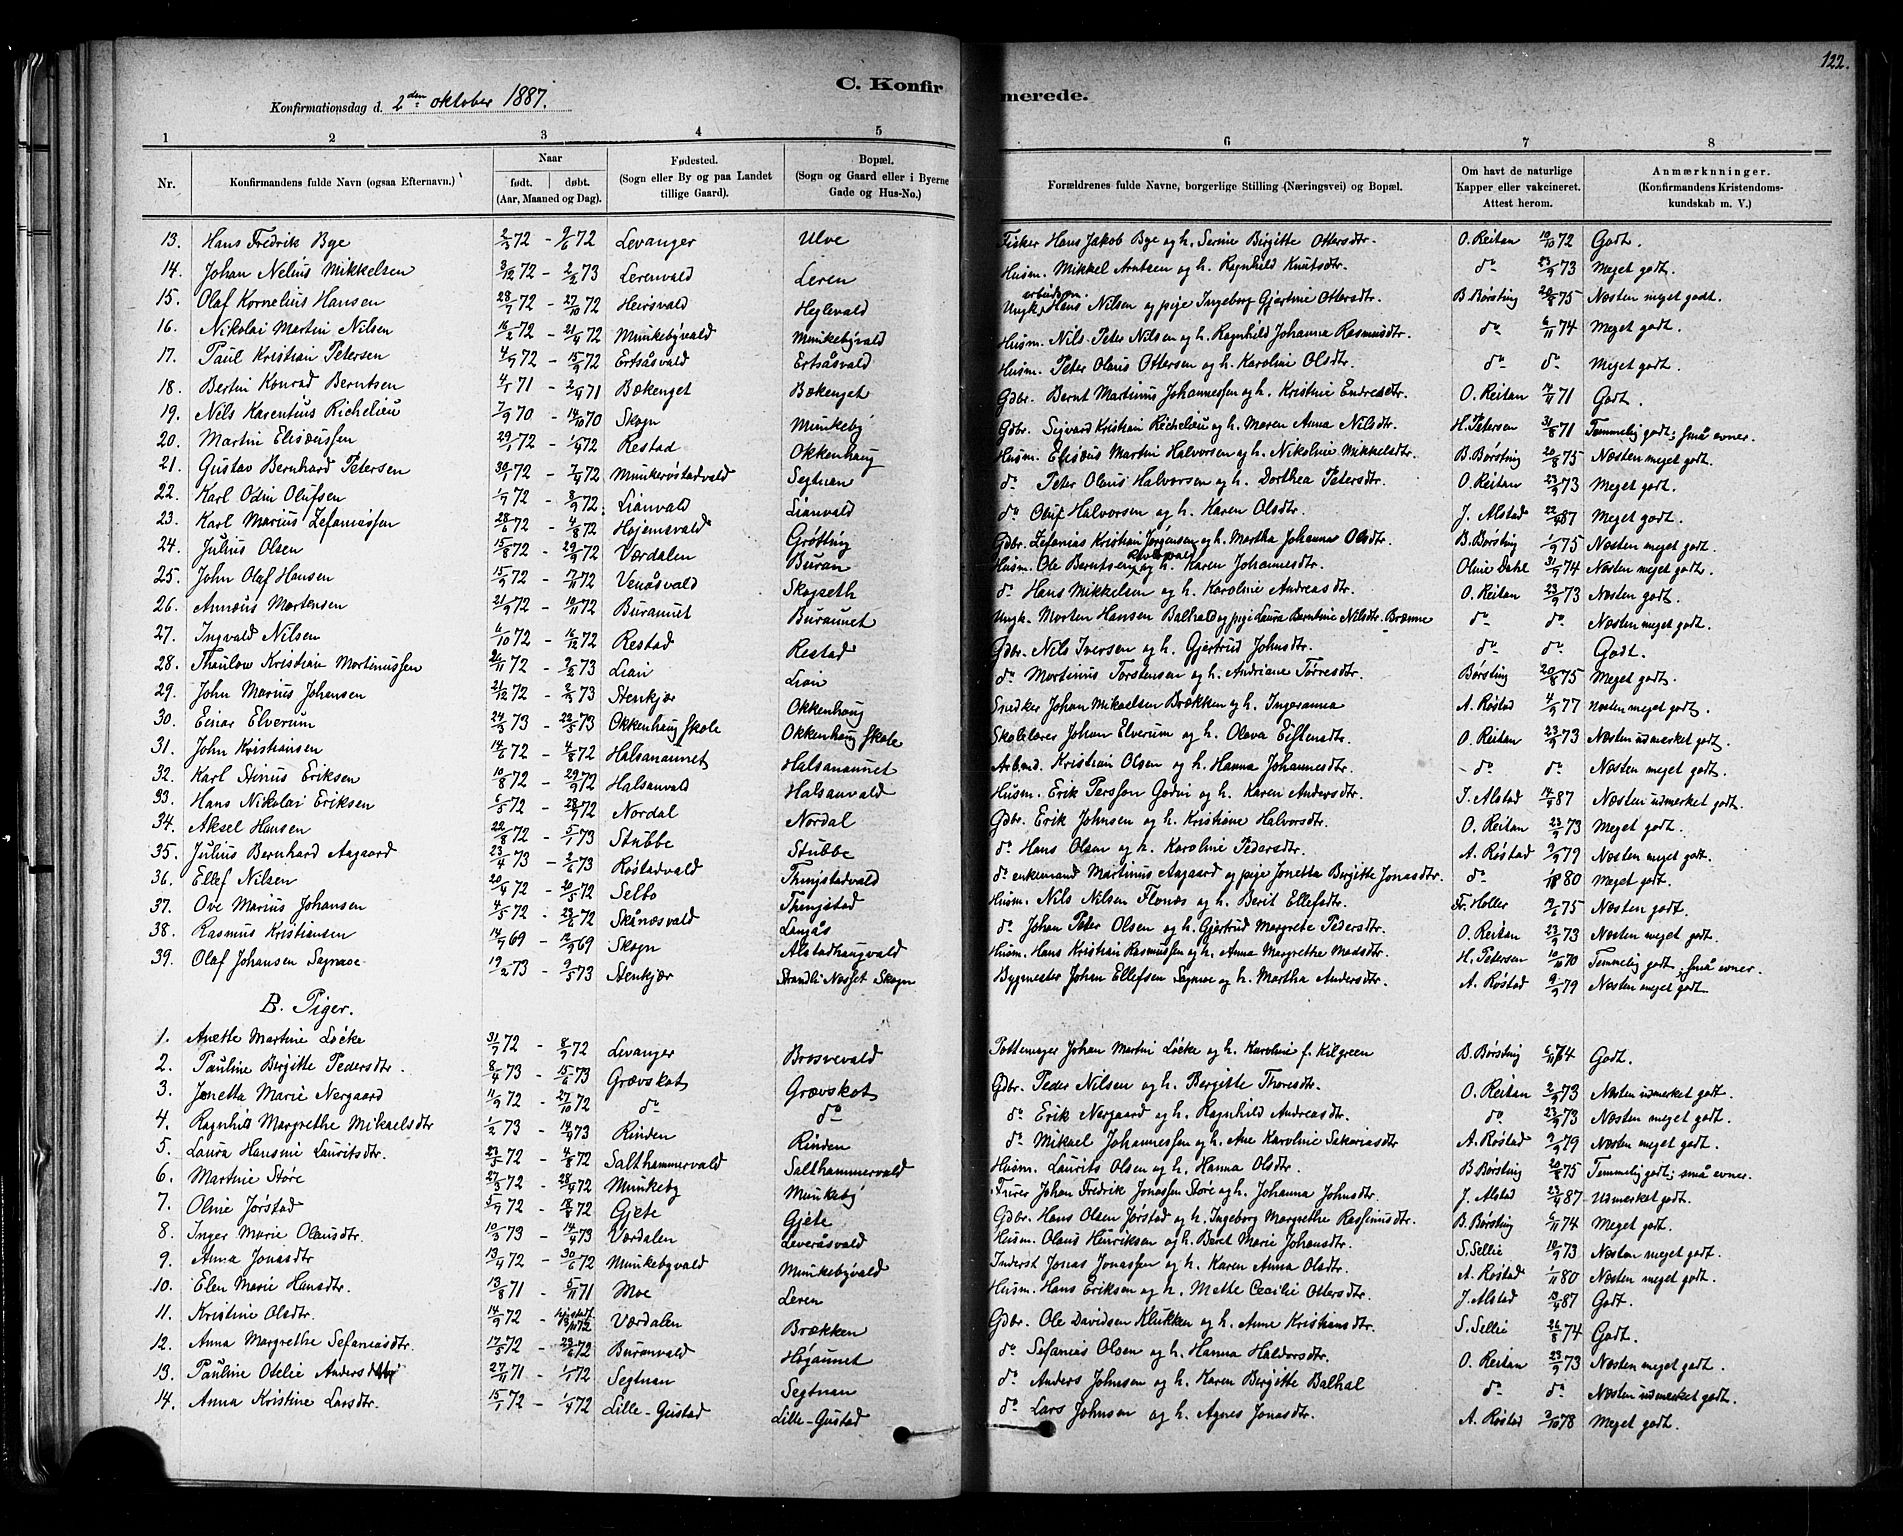 122.
C. Konfirmerede.
Konfirmationsdag d. 2den oktober 1887.
1 2 3 4 5 6 7 8
Nr. Konfirmandens fulde Navn (ogsaa Efternavn.) Naar født. døbt. (Aar, Maaned og Dag). Fødested. (Sogn eller By og paa Landet tillige Gaard). Bopæl. (Sogn og Gaard eller i Byerne Gade og Hus-No.) Forældrenes fulde Navne, borgerlige Stilling (Næringsvei) og Bopæl. Om havt de naturlige Kapper eller vakcineret. Attest herom. Anmærkninger. (Konfirmandens Kristendomskundskab m. V.)
13. Hans Fredrik Bye 2/3 72 - 9/6 72 Levanger Ulve Fisker Hans Jakob Bye og h. Serine Birgitte Ottersdtr. O. Reitan 10/10 72 Godt.
14. Johan Nelius Mikkelsen 3/12 72 - 2/2 73 Lerenvald Leren Husm. Mikkel Arntsen og h. Ragnhild Knutsdtr. do 23/9 73 Meget godt.
15. Olaf Kornelius Hansen 28/7 72 - 27/10 72 Heirsvald Hejlevald Ungk. arbeidsm. Hans Nilsen og pige Ingeborg Gjertine Ottersdtr. B. Børsting 20/8 75 Næsten meget godt.
16. Nikolai Martin Nilsen 16/2 72 - 21/4 72 Munkebyvald Munkebyvald Husm. Nils Peter Nilsen og h. Ragnhild Johanna Rasmusdtr. do 6/11 74 Meget godt.
17. Paul Kristian Petersen 4/9 72 - 15/9 72 Ertsåsvald Ertsåsvald Husm. Peter Olaus Ottersen og h. Karoline Olsdtr. do do Meget godt.
18. Bertin Konrad Berntsen 4/1 71 - 2/4 71 Bækenget Bækenget Gdbr. Bernt Martinus Johannessen og h. Kristine Endresdtr. O. Reitan 4/11 71 Godt.
19. Nils Karentius Richelieu 7/9 70 - 14/10 70 Skogn Munkeby Gdbr. Sigvard Kristian Richelieu og h. Maren Anna Nilsdtr. H. Petersen 31/8 71 Temmelig godt; små evner.
20. Martin Elisæussen 29/1 72 - 1/4 72 Restad Okkenhaug Husm. Elisæus Martin Halvorsen og h. Nikoline Mikkelsdtr. B. Børsting 20/8 75 Næsten meget godt.
21. Gustav Bernhard Petersen 30/1 72 - 7/4 72 Munkerøstadvald Segtnan do Peter Olaus Halvorsen og h. Dorthea Petersdtr. O. Reitan 23/9 73 Meget godt.
22. Karl Odin Olufsen 1/9 72 - 8/9 72 Lianvald Lianvald do Oluf Halvorsen og h. Karen Olsdtr. J. Alstad 22/4 87 Meget godt.
23. Karl Marius Zefaniassen 28/6 72 - 4/8 72 Højemsvald Grøtting Gdbr. Zefanias Kristian Jørgensen og h. Martha Johanna Olsdtr. B. Børsting 1/9 75 Næsten meget godt.
24. Julius Olsen 15/8 72 - 29/9 72 Værdalen Buran Husm. Ole Berntsen og h. Karen Johannesdtr. Oluie Dahl 31/5 74 Næsten meget godt.
25. John Olaf Hansen 15/9 72 - 7/11 72 Venåsvald Skojseth do Hans Mikkelsen og h. Karoline Andreasdtr. O. Reitan 23/9 73 Næsten godt.
26. Annæus Mortensen 21/9 72 - 10/11 72 Buraunet Buraunet Ungk. Morten Hansen Balhald og pige Laura Berntine Nilsdtr. Brænne do do Næsten meget godt.
27. Ingvald Nilsen 6/10 72 - 16/12 72 Restad Restad Gdbr. Nils Iversen og h. Gjertrud Johnsdtr. do do Godt.
28. Thaulow Kristian Mortinussen 26/11 72 - 2/2 73 Lian Lian do Mortinus Torstensen og h. Andriane Torresdtr. Børsting 20/8 75 Meget godt.
29. John Marius Johansen 21/12 72 - 2/3 73 Stenkjær Okkenhaug Snedker Johan Mikaelsen Brækken og h. Ingeranna A. Røstad 4/9 77 Næsten meget godt.
30. Einar Elverum 24/3 73 - 22/5 73 Okkenhaug Skole Okkenhaug Skole Skolelærer Johan Elverum og h. Olava Eistensdtr. O. Reitan 23/9 73 Næsten udmerket godt.
31. John Kristiansen 14/6 72 - 4/8 72 Halsanaunet Halsanaunet Arb.md. Kristian Olsen og h. Hanna Johannesdtr. do do Næsten meget godt.
32. Karl Stinus Eriksen 10/8 72 - 29/9 72 Halsanvald Halsanvald Husm. Erik Persson Godin og h. Karen Andersdtr. J. Alstad 14/9 87 Næsten udmerket godt.
33. Hans Nikolai Eriksen 6/5 72 - 28/7 72 Nordal Nordal Gdbr. Erik Johnsen og h. Kristiane Halvorsdtr. O. Reitan 23/9 73 Meget godt.
34. Aksel Hansen 22/8 72 - 5/1 73 Stubbe Stubbe do Hans Olsen og h. Karoline Pedersdtr. A. Røstad 9/9 79 Næsten meget godt.
35. Julius Bernhard Aagaard 23/4 73 - 2/6 73 Røstadvald Thingstadvald do enkemand Martinus Aagaard og pige Jonetta Birgitte Jonasdtr. do 1/11 80 Meget godt.
36. Ellef Nilsen 20/4 72 - 20/5 72 Selbo Thingstad Husm. Nils Nilsen Flonæs og h. Berit Ellefsdtr. Fr. Holler 9/6 75 Næsten godt.
37. Ove Marius Johansen 4/5 72 - 23/6 72 Skånæsvald Langås do Johan Peter Olsen og h. Gjertrud Margrete Pedersdtr. O. Reitan 23/9 73 Næsten meget godt.
38. Rasmus Kristiansen 14/7 69 - 12/9 69 Skogn Alstadhaugvald Husm. Hans Kristian Rasmussen og h. Anna Margrethe Madsdtr. H. Petersen 10/10 70 Temmelig godt, små evner.
39. Olaf Johansen Sagnæs 19/2 73 - 9/5 73 Stenkjær Strandli Næsset Skogn Bygmester Johan Ellefsen Sagnæs og h. Martha Andersdtr. A. Røstad 9/9 79 Næsten meget godt
B. Piger.
1. Anette Martine Løcke 31/7 72 - 8/9 72 Levanger Brosvevald Pottemager Johan Martin Løcke og h. Karoline f. Kilgreen B. Børsting 6/11 74 Godt.
2. Pauline Birgitte Pedersdtr. 8/4 73 - 15/6 73 Grævskot Grævskot Gdbr. Peder Nilsen og h. Bergitte Thoresdtr. O. Reitan 2/9 73 Næsten udmerket godt.
3. Jonetta Marie Nergaard 11/9 72 - 27/10 72 do do do Erik Nergaard og h. Ragnhild Andreasdtr. do 23/9 73 Næsten meget godt.
4. Ragnhild Margrethe Mikaelsdtr 1/2 73 - 14/4 73 Rinden Rinden do Mikael Johannessen og h. Ane Karoline Sakariasdtr A. Røstad 9/9 79 Næsten meget godt.
5. Laura Hansine Lauritsdtr. 23/5 72 - 4/8 72 Salthammervald Salthammervald Husm. Laurits Olsen og h. Hanna Olsdtr. B. Børsting 20/8 75 Temmelig godt; små evner.
6. Martine Støre 27/3 72 - 28/4 72 Munkeby Munkeby Furer Johan Fredrik Jonassen Støre og h. Johanna Johnsdtr. J. Alstad 23/4 87 Udmerket godt.
7. Oline Jørstad 5/9 72 - 18/8 72 Gjete Gjete Gdbr. Hans Olsen Jørstad og h. Ingeborg Margrethe Rasmusdtr. B. Børsting 6/11 74 Meget godt.
8. Inger Marie Olausdtr. 10/3 73 - 14/4 73 Værdalen Leveråsvald Husm. Olaus Henriksen og h. Beret Marie Johansdtr. S. Sellie 10/9 73 Næsten meget godt.
9. Anna Jonasdtr 13/4 72 - 30/6 72 Munkebyvald Munkebyvald Inderst Jonas Jonassen og h. Karen Anna Olsdtr. A. Røstad 1/11 80 Næsten meget godt.
10. Elen Marie Hansdtr. 13/8 71 - 5/11 71 Moe Leren Husm. Hans Eriksen og h. Mette Cecilie Ottersdtr. J. Alstad 13/4 87 Godt.
11. Kristine Olsdtr. 14/9 72 - Værdalen Brækken Gdbr. Ole Davidsen Klukken og h. Anne Kristiansdtr. S. Sellie 26/8 74 Godt.
12. Anna Margrethe Sefaniasdtr. 17/5 72 - 23/6 72 Buranvald Højaunet do Sefanias Olsen og h. Hanna Haldorsdtr. O. Reitan 23/9 73 Næsten meget godt.
13. Pauline Otelie Andersdtr 27/11 71 - 1/1 72 Segtnan Segtnan do Anders Johnsen og h. Karen Bergitte Balhal do do Næsten udmerket godt.
14. Anna Kristine Larsdtr. 15/1 72 - 1/4 72 Lille-Gustad Lille-Gustad do Lars Johnsen og h. Agnes Jonasdtr. A. Røstad 2/10 78 Meget godt.